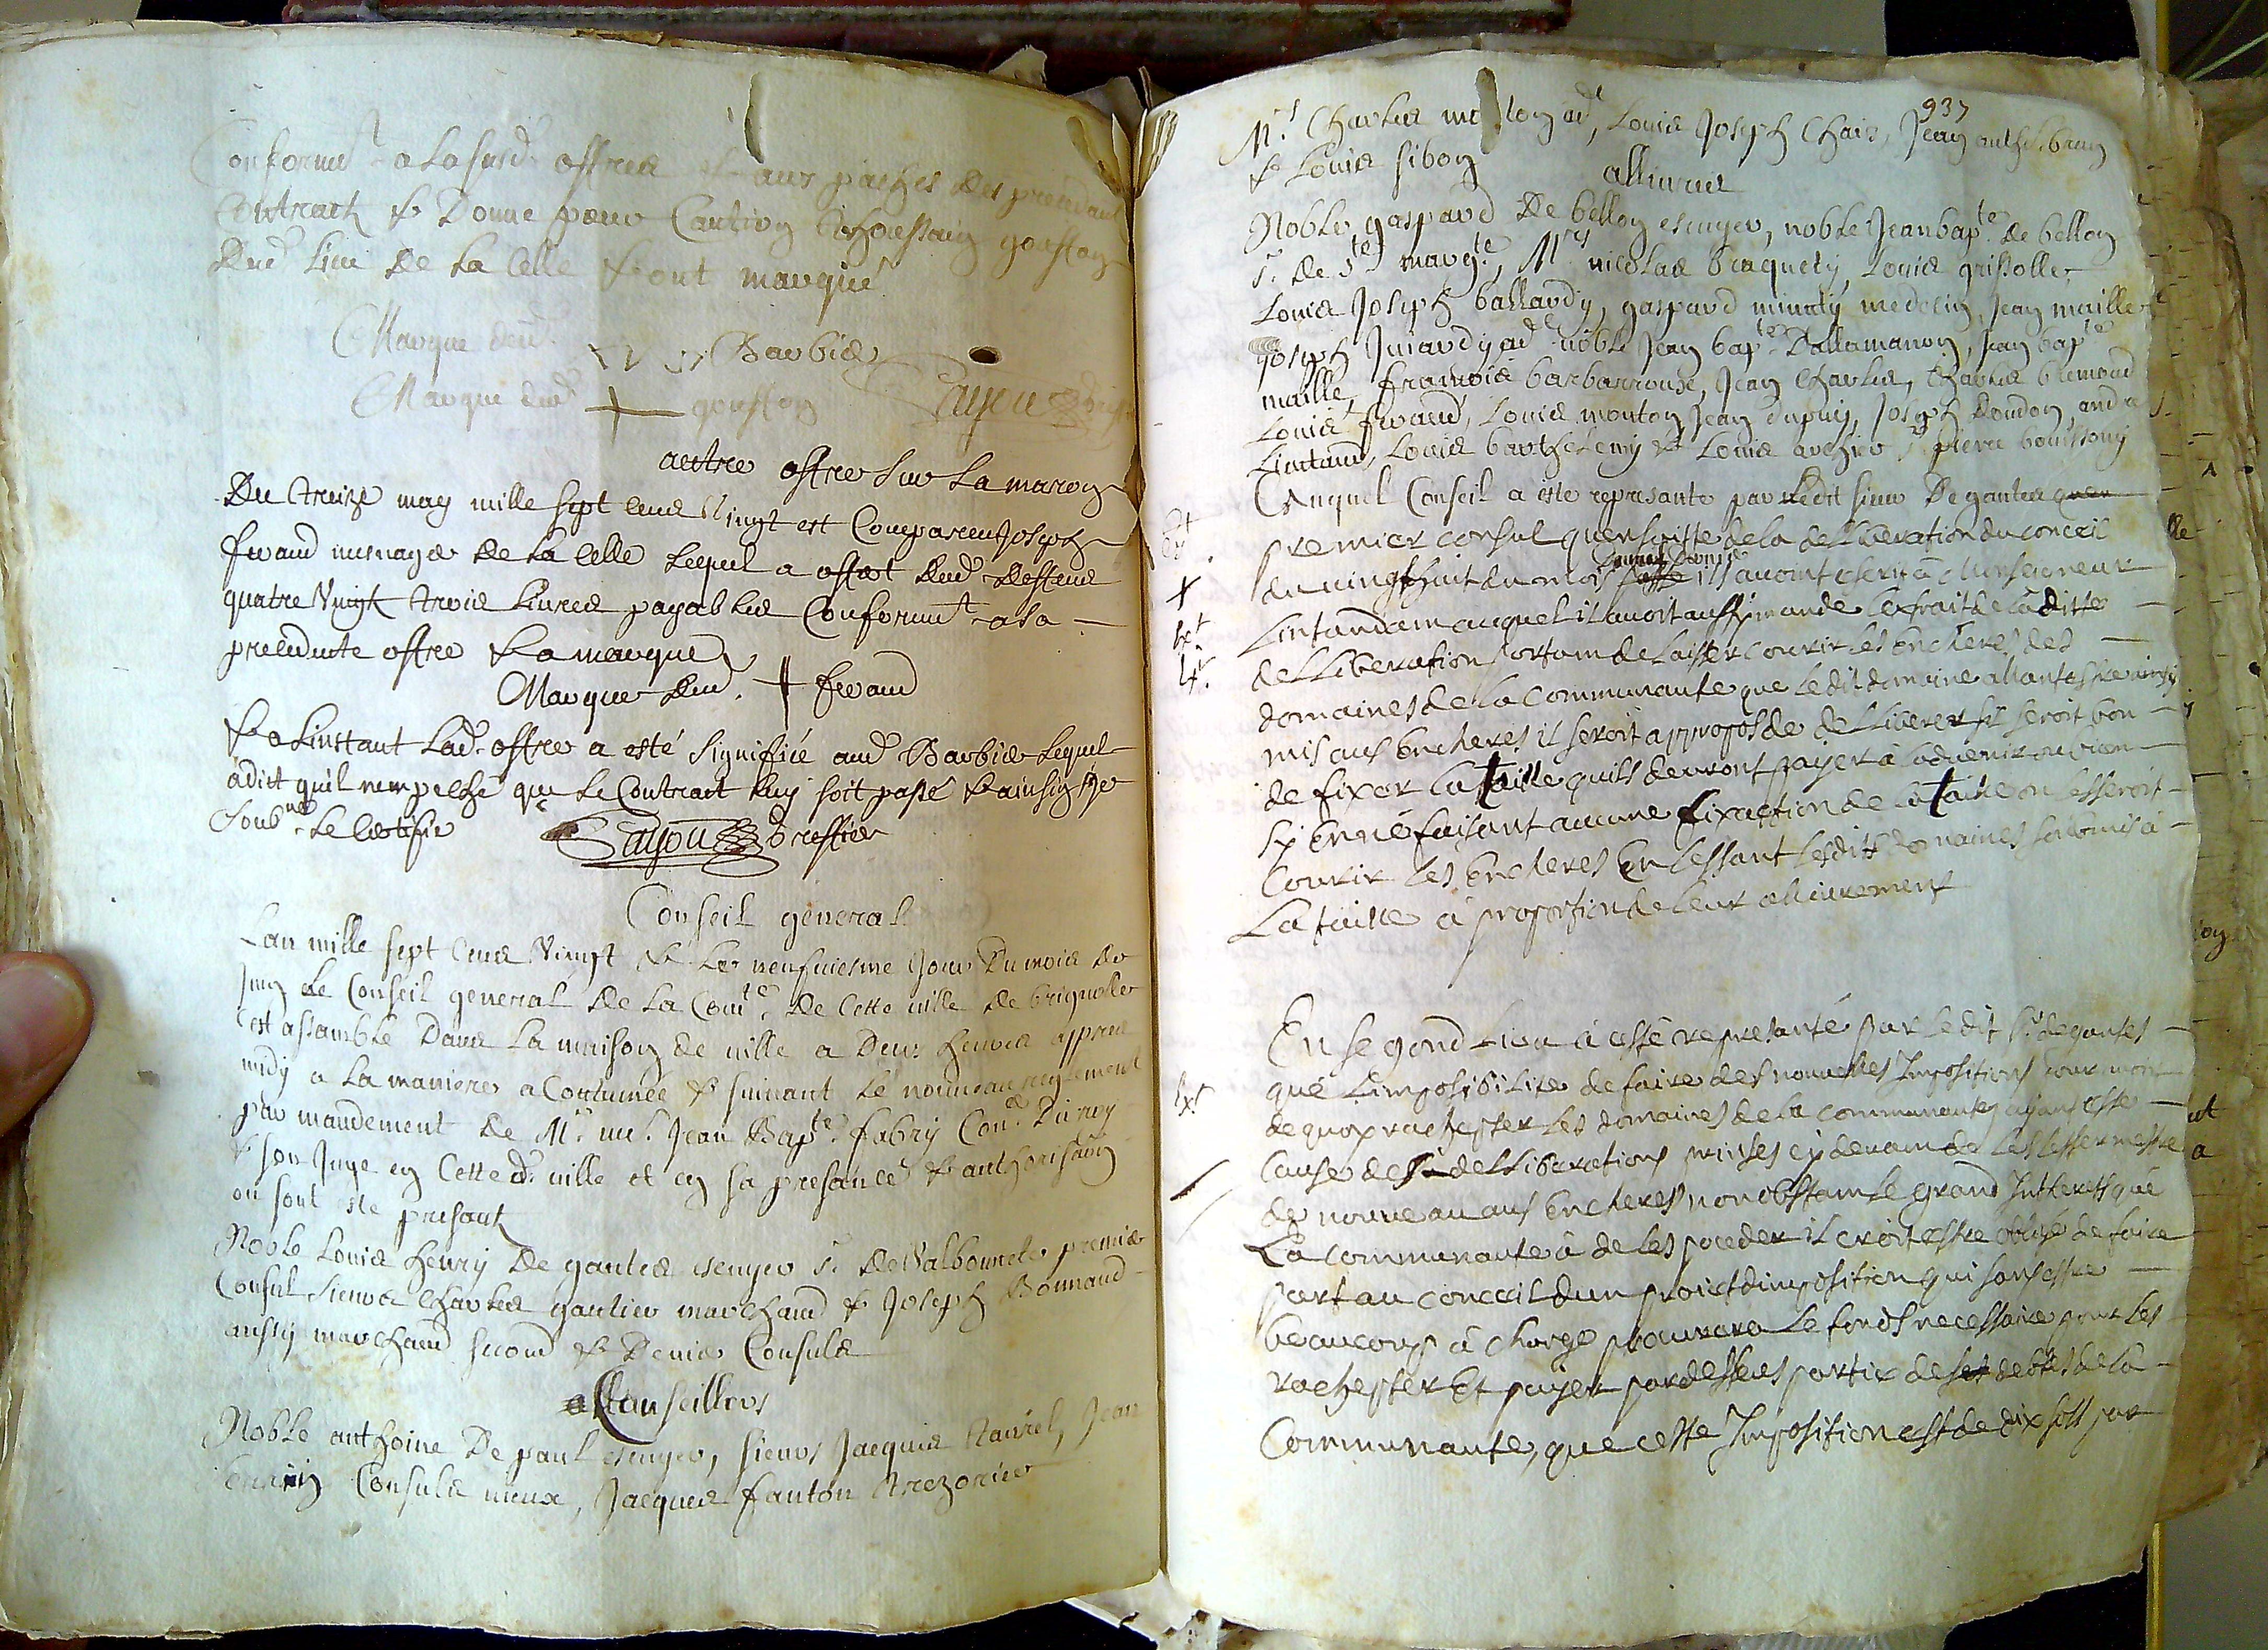 Conformt a la susd. offree et aux paches des precedant
contract & donne pour caution thoussain gouston
dud. lieu de la Celle & ont marqué
Marque dud. Barbier
Marque dud. gouston
Sayou greffier
autre offre sur la maroy
Du treize may mille sept cens vingt est compareu Joseph
feraud mesnager de la Celle lequel a offert dud. deffens
quatre vingt trois livres payables conformt a la
precedente offre & a marqué
Marque dud. feraud
& a linstant lad. offre a esté signiffiée aud Barbier lequel
a dict quil nempeche que le contract luy soit passé & ainsin je
soubné le certifie Sayou greffier
Conseil general
Lan mille sept cens vingt & le neufviesme jour du mois de
juin le conseil general de la comte. de cette ville de brignolle
cest assamblé dans la maison de ville a deux heures appres
midy a la maniere acoutumée & suivant le nouveau reglement
par mandement de Mr. me. Jean Bapte. fabry Coner. du roy
& son juge en cette d. ville et en sa presance & authorisaon
ou sont este presant
Noble Louis henry de gantes escuyer sr. de Valbonnete premier
consul sieurs Charles gautier marchand & Joseph Bonnaud
aussy marchand second & dernier consuls
Conseillers
Noble anthoine de paul escuyer, sieurs Jacques taurel, Jean
consuls vieux, Jacques fanton trezorier
937
Mrs. Charles mouton ad, Louis Joseph Chais, Jean anthe. brun
& Louis sibon
allivres
Noble gaspard de bellon escuyer, noble Jean bapte. de bellon
sr. de ste. margte., Mrs nicolas braquety, Louis grissolle
Louis Joseph ballardy, gaspard minuty medecin, Jean maille
Joseph Juiardy ad noble Jean bapte. dallamanon, Jean bapte
maille, francois barbarrouse, Jean Charles, Charles bremond
Louis feraud, Louis mouton Jean dupuy, Joseph doudon andre
Lieutaud, Louis barthelemy & Louis archier pierre bouissony
Auquel conseil a este represanté par ledit sieur de gantes
premier consul quensuitte de la delliberation du conceil
du vingthuit du mois il avoint escrit à Monseigneur
Lintandam auquel il avoit aussy mandé lextrait de laditte
delliberation portam de laisser courir les encheres des
domaines de la communauté que ledit domaine allant estre ainsy
mis aus encheres il seroit appropos de delliberer sil seroit bon
de fixer la taille quils devront payer à ladvenir ou bien
sy en ne faisant aucune fixaction de la taille on lesseroit
courir les encheres en lessant lesdits domaines soumis à
La taille à proportion de leur allivrement
En segond lieu à esté represanté par ledit sr. de gantes
que limposibilité de faire des nouvelles impositions pour avoir
de quoy rachepter les domaines de la communauté ayant esté
cause des delliberations prinses cy devam de les lesser mestre
de nouveau aus encheres nonobstam le grand intherets que
La communauté à de les poceder il croit estre obligé de faire
part au conceil dun proict dimposition qui sans estre
beaucoup à charge procurera le fonds necessaire pour les
rachepter et payer pardessus partie des debtes de la
communauté, que cette imposition est de dix sols par